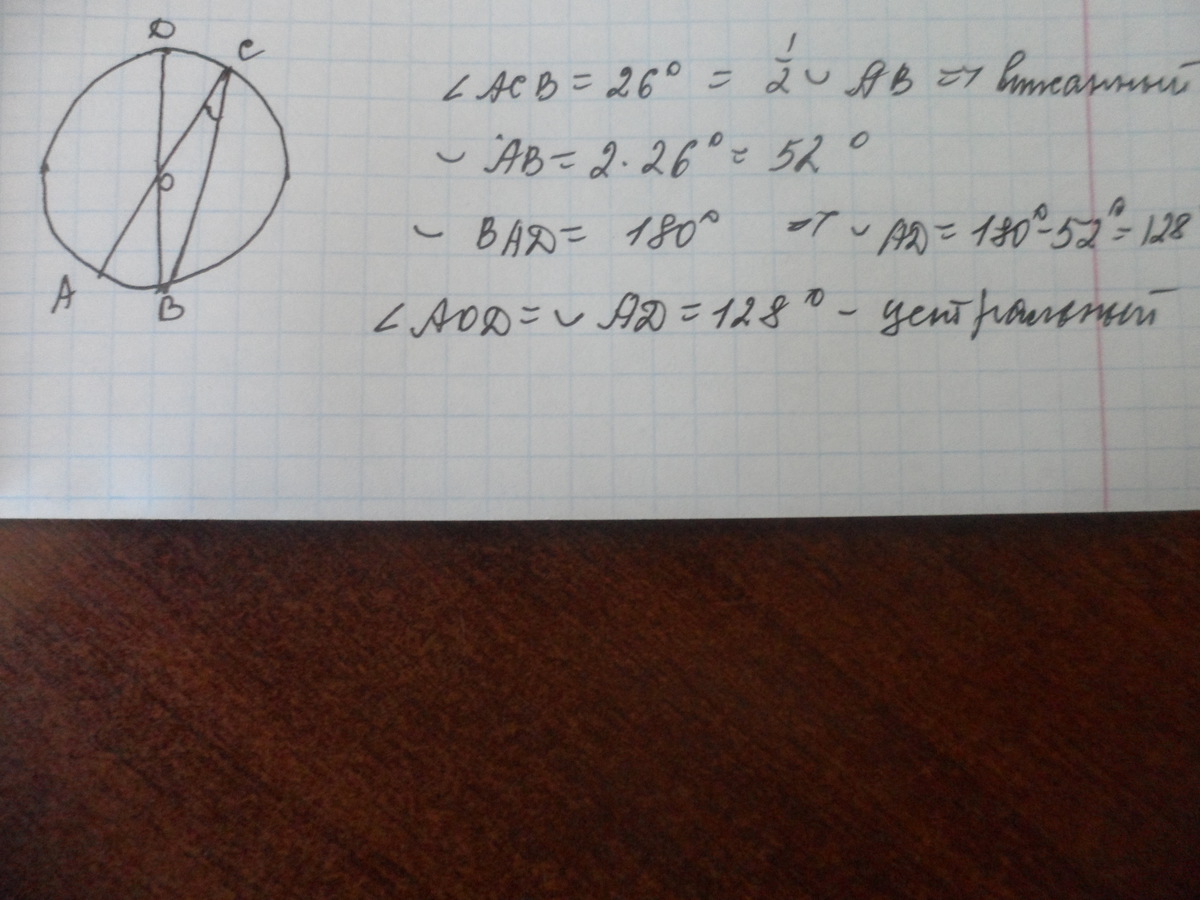 D
C
O
A
B
∠ACB = 26° = 1/2 ◡ AB => вписанный
◡ AB = 2·26° = 52°
◡ BAD = 180° => ◡ AD = 180° - 52° = 128
∠AOD = ◡ AD = 128° - центральный